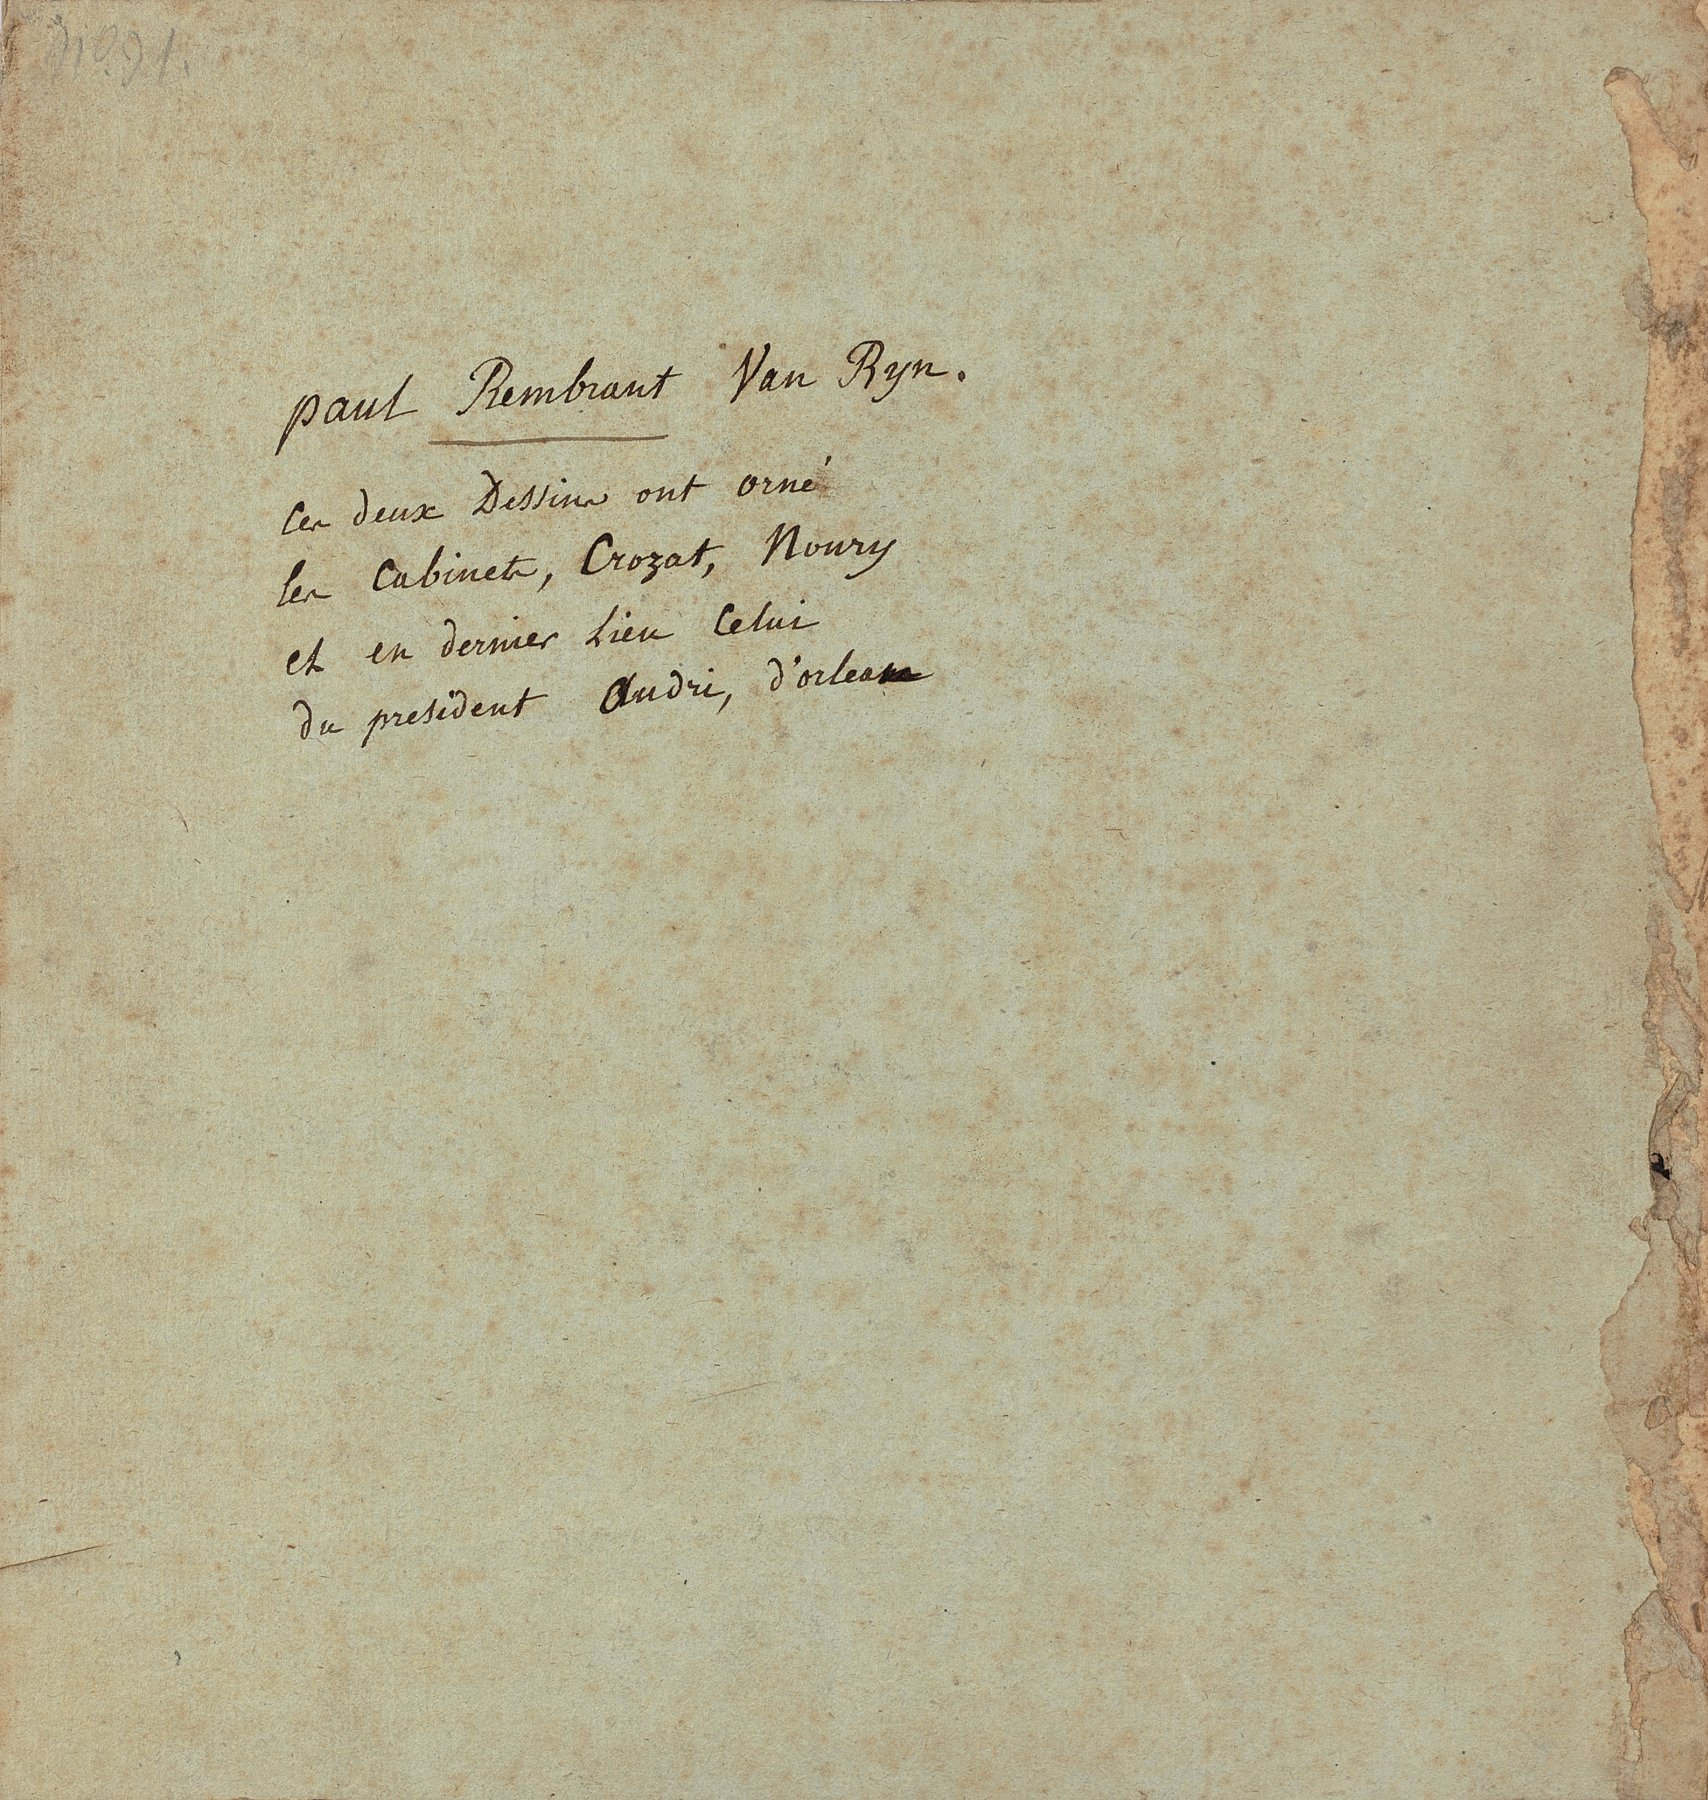 No. 91.
paul Rembrant Van Ryn.
Ces deux Dessins ont orné
les Cabinets, Crozat, Noury
et en dernier Lieu Celui
du president Audri, d'orleans